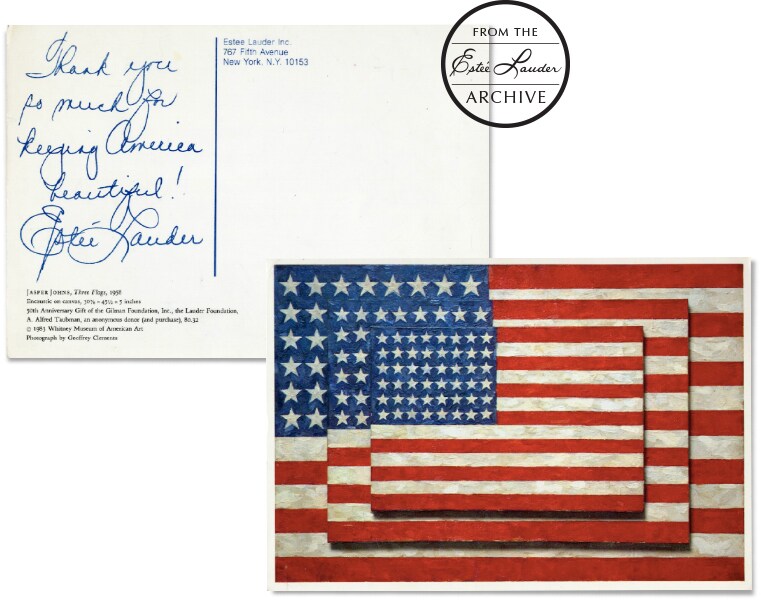 Thank you
so much for
keeping America
beautiful!
Estée Lauder
JASPER JOHNS, Three Flags, 1958
Encaustic on canvas, 30⅞ × 45½ × 5 inches
50th Anniversary Gift of the Gilman Foundation, Inc., the Lauder Foundation,
A. Alfred Taubman, an anonymous donor (and purchase), 80.32
© 1983 Whitney Museum of American Art
Photograph by Geoffrey Clements
Estee Lauder Inc.
767 Fifth Avenue
New York, N.Y. 10153
FROM THE
Estée Lauder
ARCHIVE